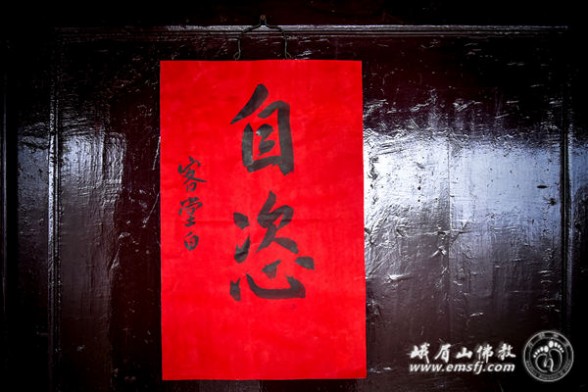 自恣
客堂白
峨眉山佛教
www.emsfj.com